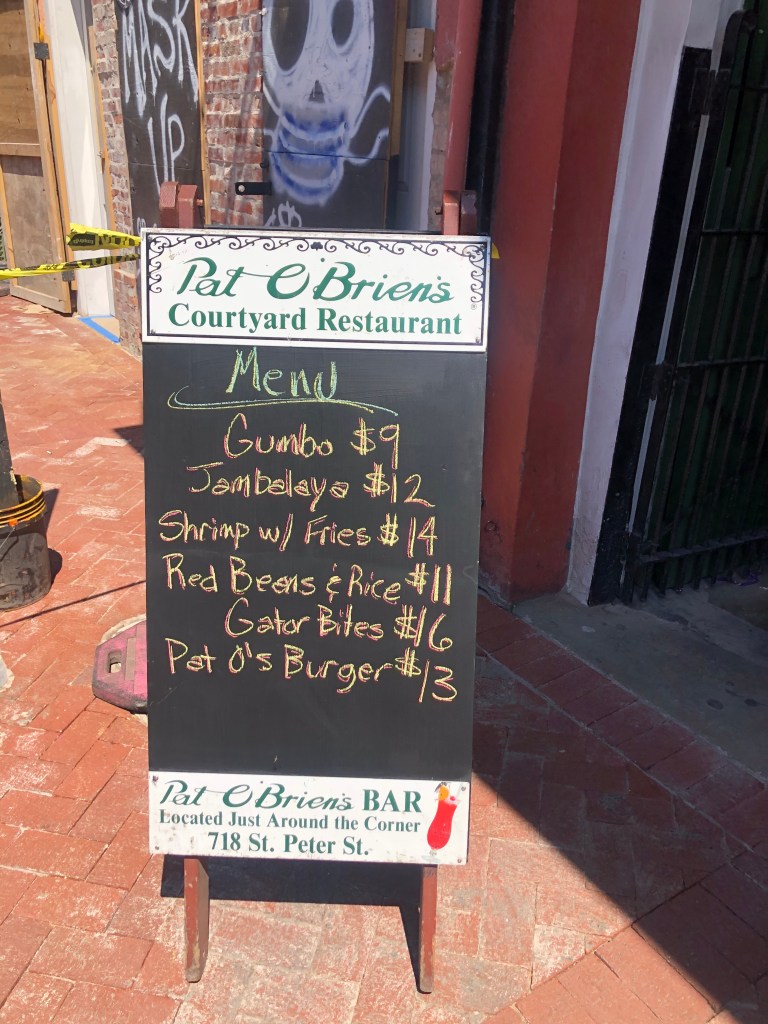 MASK
UP
Pat O'Brien's
Courtyard Restaurant
Menu
Gumbo $9
Jambalaya $12
Shrimp w/ Fries $14
Red Beans & Rice $11
Gator Bites $16
Pat O's Burger $13
Pat O'Brien's BAR
Located Just Around the Corner
718 St. Peter St.